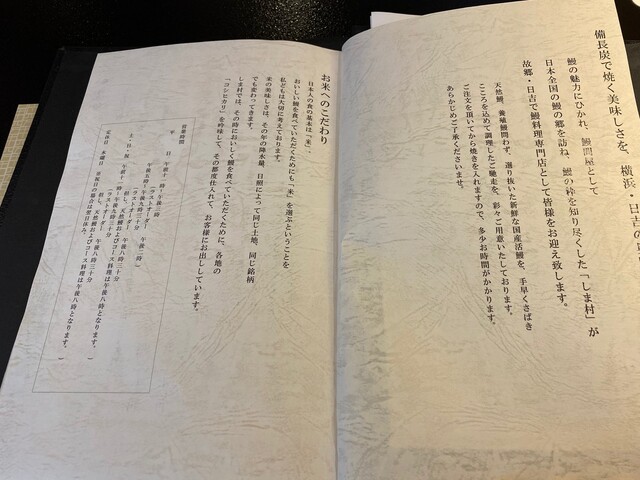 備長炭で焼く美味しさを、横浜・日吉の
鰻の魅力にひかれ、鰻問屋として
日本全国の鰻の郷を訪ね、鰻の粋を知り尽くした「しま村」が
故郷・日吉で鰻料理専門店として皆様をお迎え致します。
天然鰻、養殖鰻問わず、選り抜いた新鮮な国産活鰻を、手早くさばき
こころを込めて調理したご馳走を、彩々ご用意いたしております。
ご注文を頂いてから焼きを入れますので、多少お時間がかかります。
あらかじめご了承くださいませ。
お米へのこだわり
日本人の食の基本は「米」
おいしい鰻を食べていただくためにも「米」を選ぶということを
私どもは大切に考えております。
米の美味しさは、その年の降水量、日照によって同じ土地、同じ銘柄
でも変わってきます。
しま村では、その時においしく鰻を食べていただくために、各地の
「コシヒカリ」を吟味して、その都度仕入れて、お客様にお出ししています。
営業時間
平 日 午前十一時〜午後三時
(ラストオーダー 午後二時)
午後五時〜午後九時三十分
(ラストオーダー 午後八時三十分
但し、天然鰻およびコース料理は午後八時となります。)
土・日・祝 午前十一時〜午後九時三十分
(ラストオーダー 午後八時三十分
但し、天然鰻およびコース料理は午後八時となります。)
定休日 水曜日 ※祝日の場合は翌日休み。